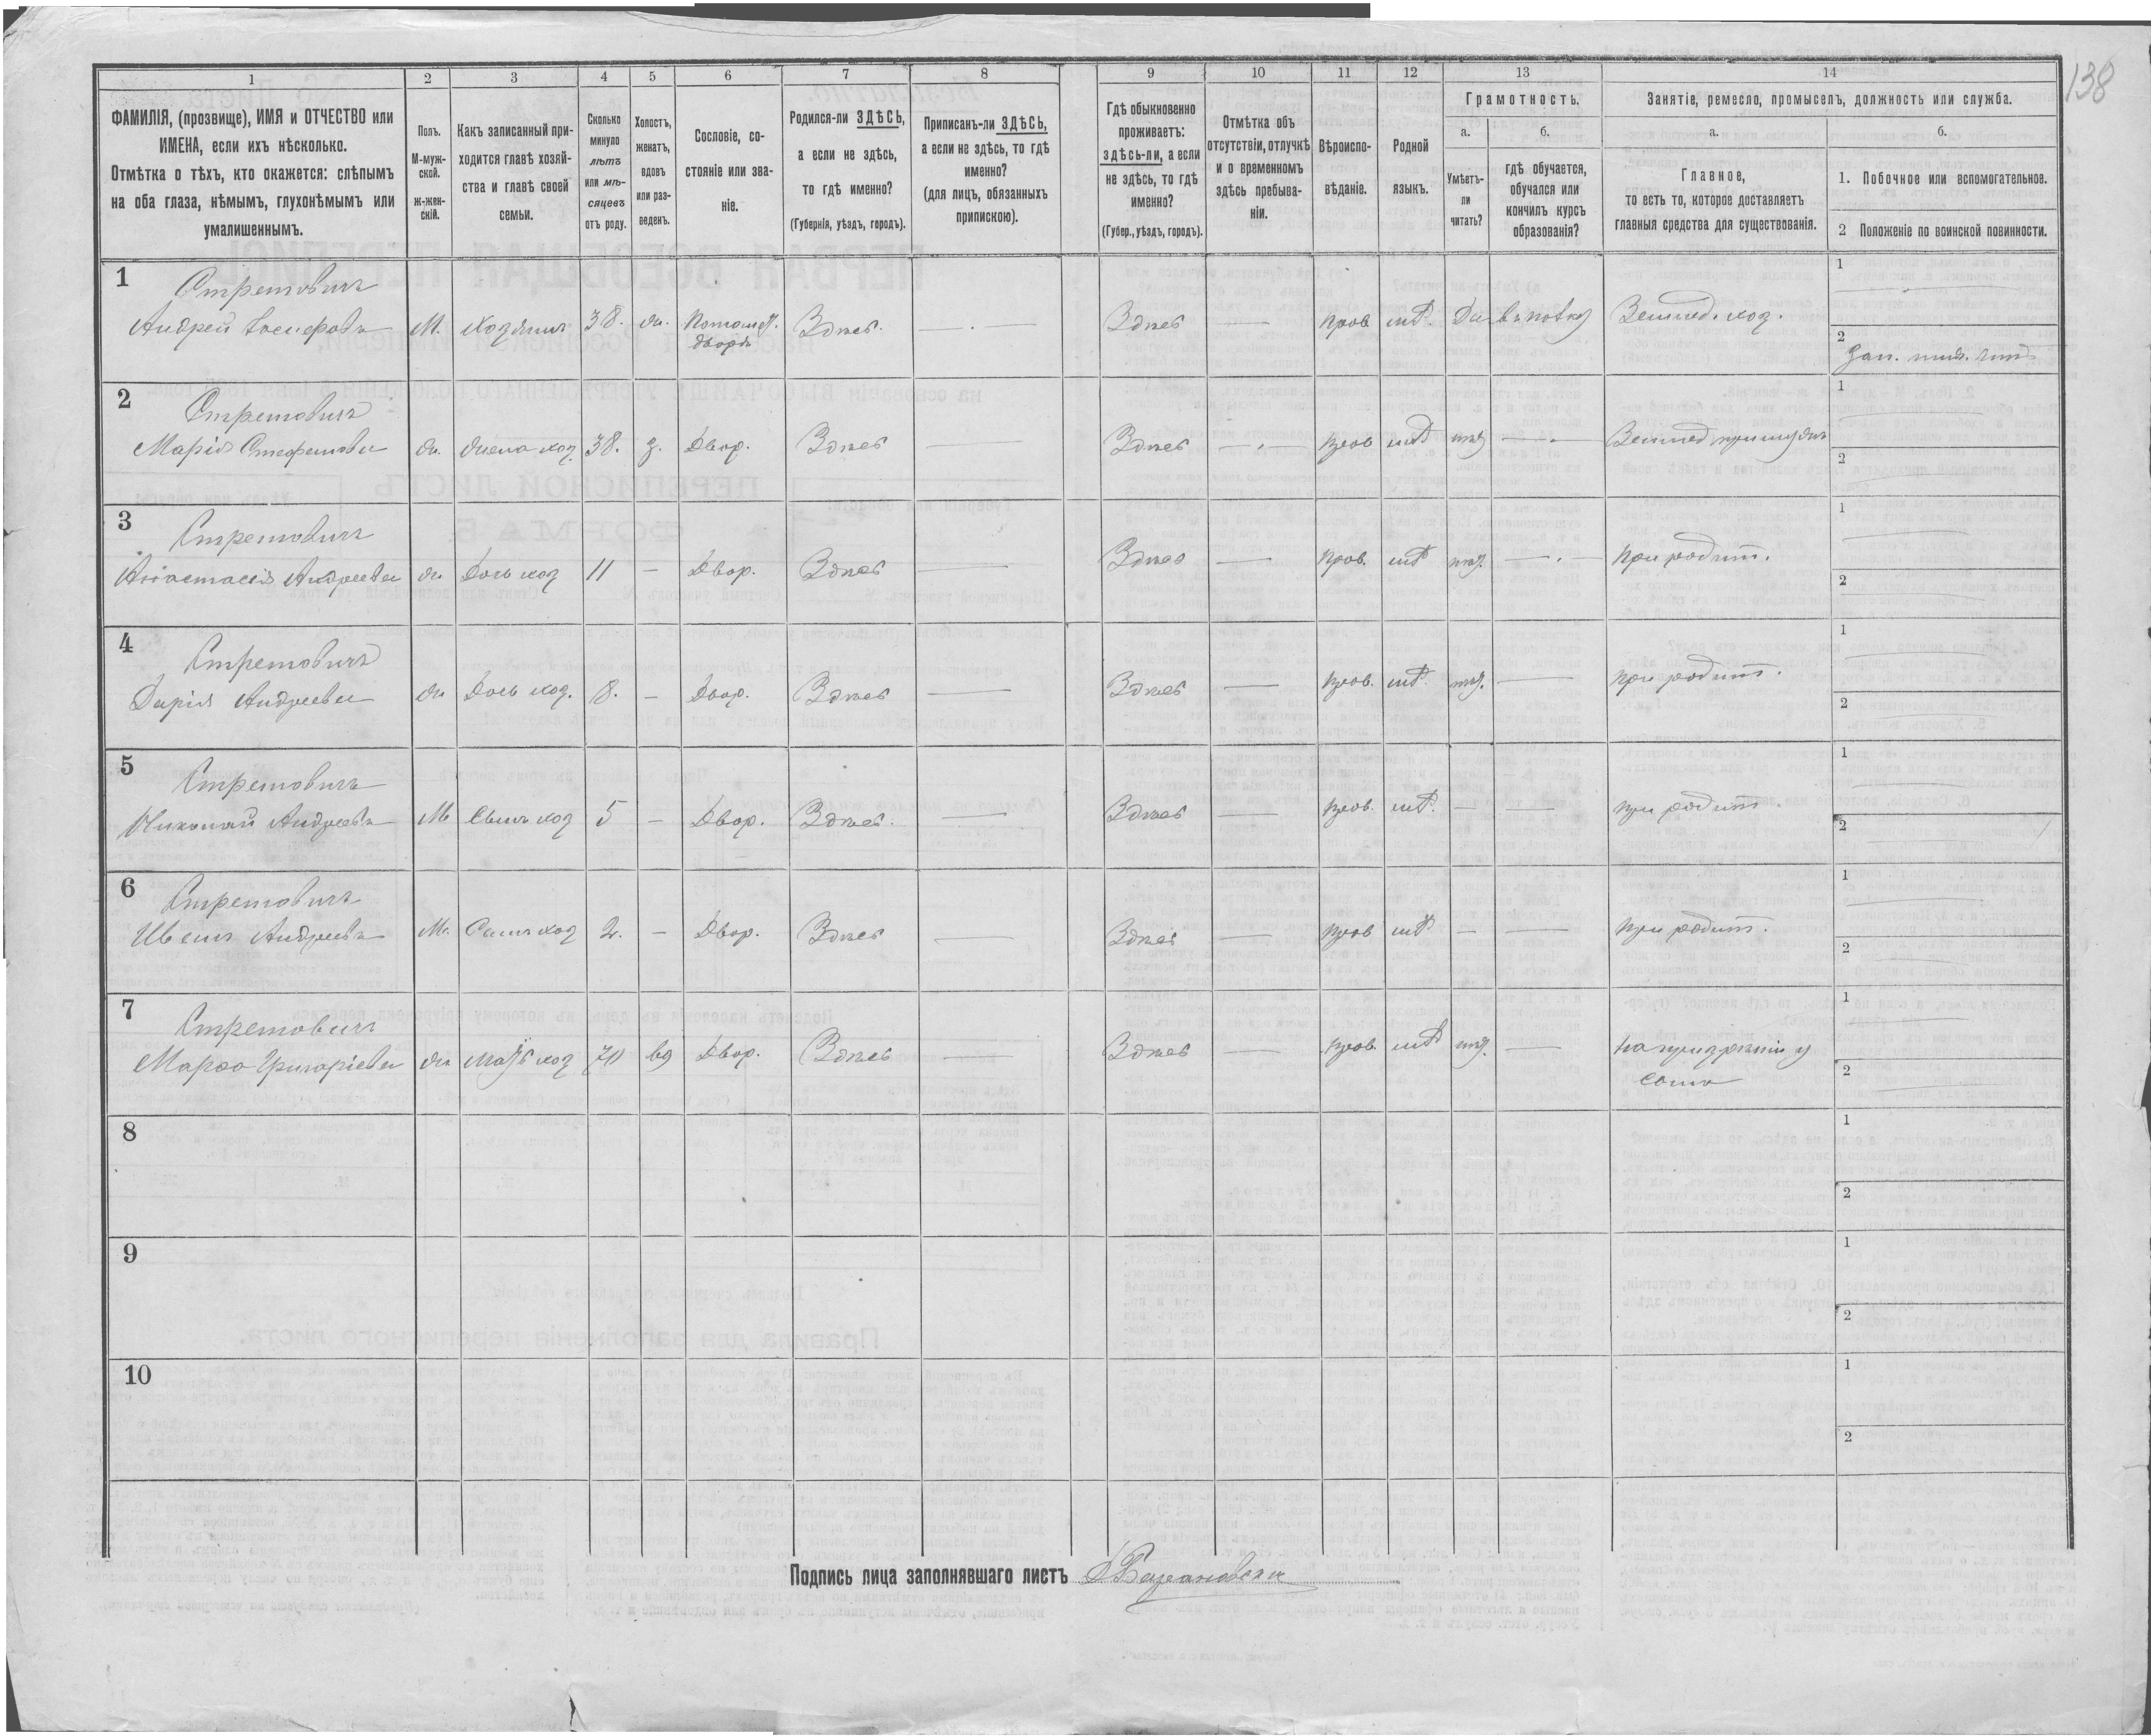 138
1
2
3
4
5
6
7
8
9
10
11
12
13
14
ФАМИЛІЯ, (прозвище), ИМЯ и ОТЧЕСТВО или
ИМЕНА, если ихъ нѣсколько.
Отмѣтка о тѣхъ, кто окажется: слѣпымъ
на оба глаза, нѣмымъ, глухонѣмымъ или
умалишеннымъ.
Полъ.
М-муж-
ской.
Ж-жен-
скій.
Какъ записанный при-
ходится главѣ хозяй-
ства и главѣ своей
семьи.
Сколько
минуло
лѣтъ
или мѣ-
сяцевъ
отъ роду.
Холостъ,
женатъ,
вдовъ
или раз-
веденъ.
Сословіе, со-
стояніе или зва-
ніе.
Родился-ли ЗДѢСЬ,
а если не здѣсь,
то гдѣ именно?
(Губернія, уѣздъ, городъ).
Приписанъ-ли ЗДѢСЬ,
а если не здѣсь, то гдѣ
именно?
(для лицъ, обязанныхъ
припискою).
Гдѣ обыкновенно
проживаетъ:
здѣсь-ли, а если
не здѣсь, то гдѣ
именно?
(Губер., уѣздъ, городъ).
Отмѣтка объ
отсутствіи, отлучкѣ
и о временномъ
здѣсь пребыва-
ніи.
Вѣроиспо-
вѣданіе.
Родной
языкъ.
Грамотность.
а.
б.
Умѣетъ-
ли
читать?
гдѣ обучается,
обучался или
кончилъ курсъ
образованія?
Занятіе, ремесло, промыселъ, должность или служба.
а.
б.
Главное,
то есть то, которое доставляетъ
главныя средства для существованія.
1. Побочное или вспомогательное.
2 Положеніе по воинской повинности.
1
Стретовичъ
Андрей Іосифовъ М. Хозяинъ 38. ж. Потомст. Здѣсь. Здѣсь прав. Да Землед. хоз.
дворя
1
2
2
Стретовичъ
Марія Стефанова ж. жена хоз. 38. з. Двор. Здѣсь Здѣсь прав нѣт Землед при мужѣ
1
2
3
Стретовичъ
Анастасія Андреева ж. Дочь хоз 11 — Двор. Здѣсь Здѣсь прав. нѣт при родит.
1
2
4
Стретовичъ
Дарія Андреева ж. Дочь хоз. 8. — Двор. Здѣсь Здѣсь прав. нѣт. при родит.
1
2
5
Стретовичъ
Николай Андреевъ М Сынъ хоз 5 — Двор. Здѣсь. Здѣсь прав. — при родит.
1
2
6
Стретовичъ
Иванъ Андреевъ М. Сынъ хоз 2. — Двор. Здѣсь Здѣсь прав — при родит.
1
2
7
Стретовичъ
Марѳа Григоріева ж. Мать хоз 70 вд Двор. Здѣсь Здѣсь прав. нѣт. на призрѣніи у
сына
1
2
8
1
2
9
1
2
10
1
2
Подпись лица заполнявшаго листъ